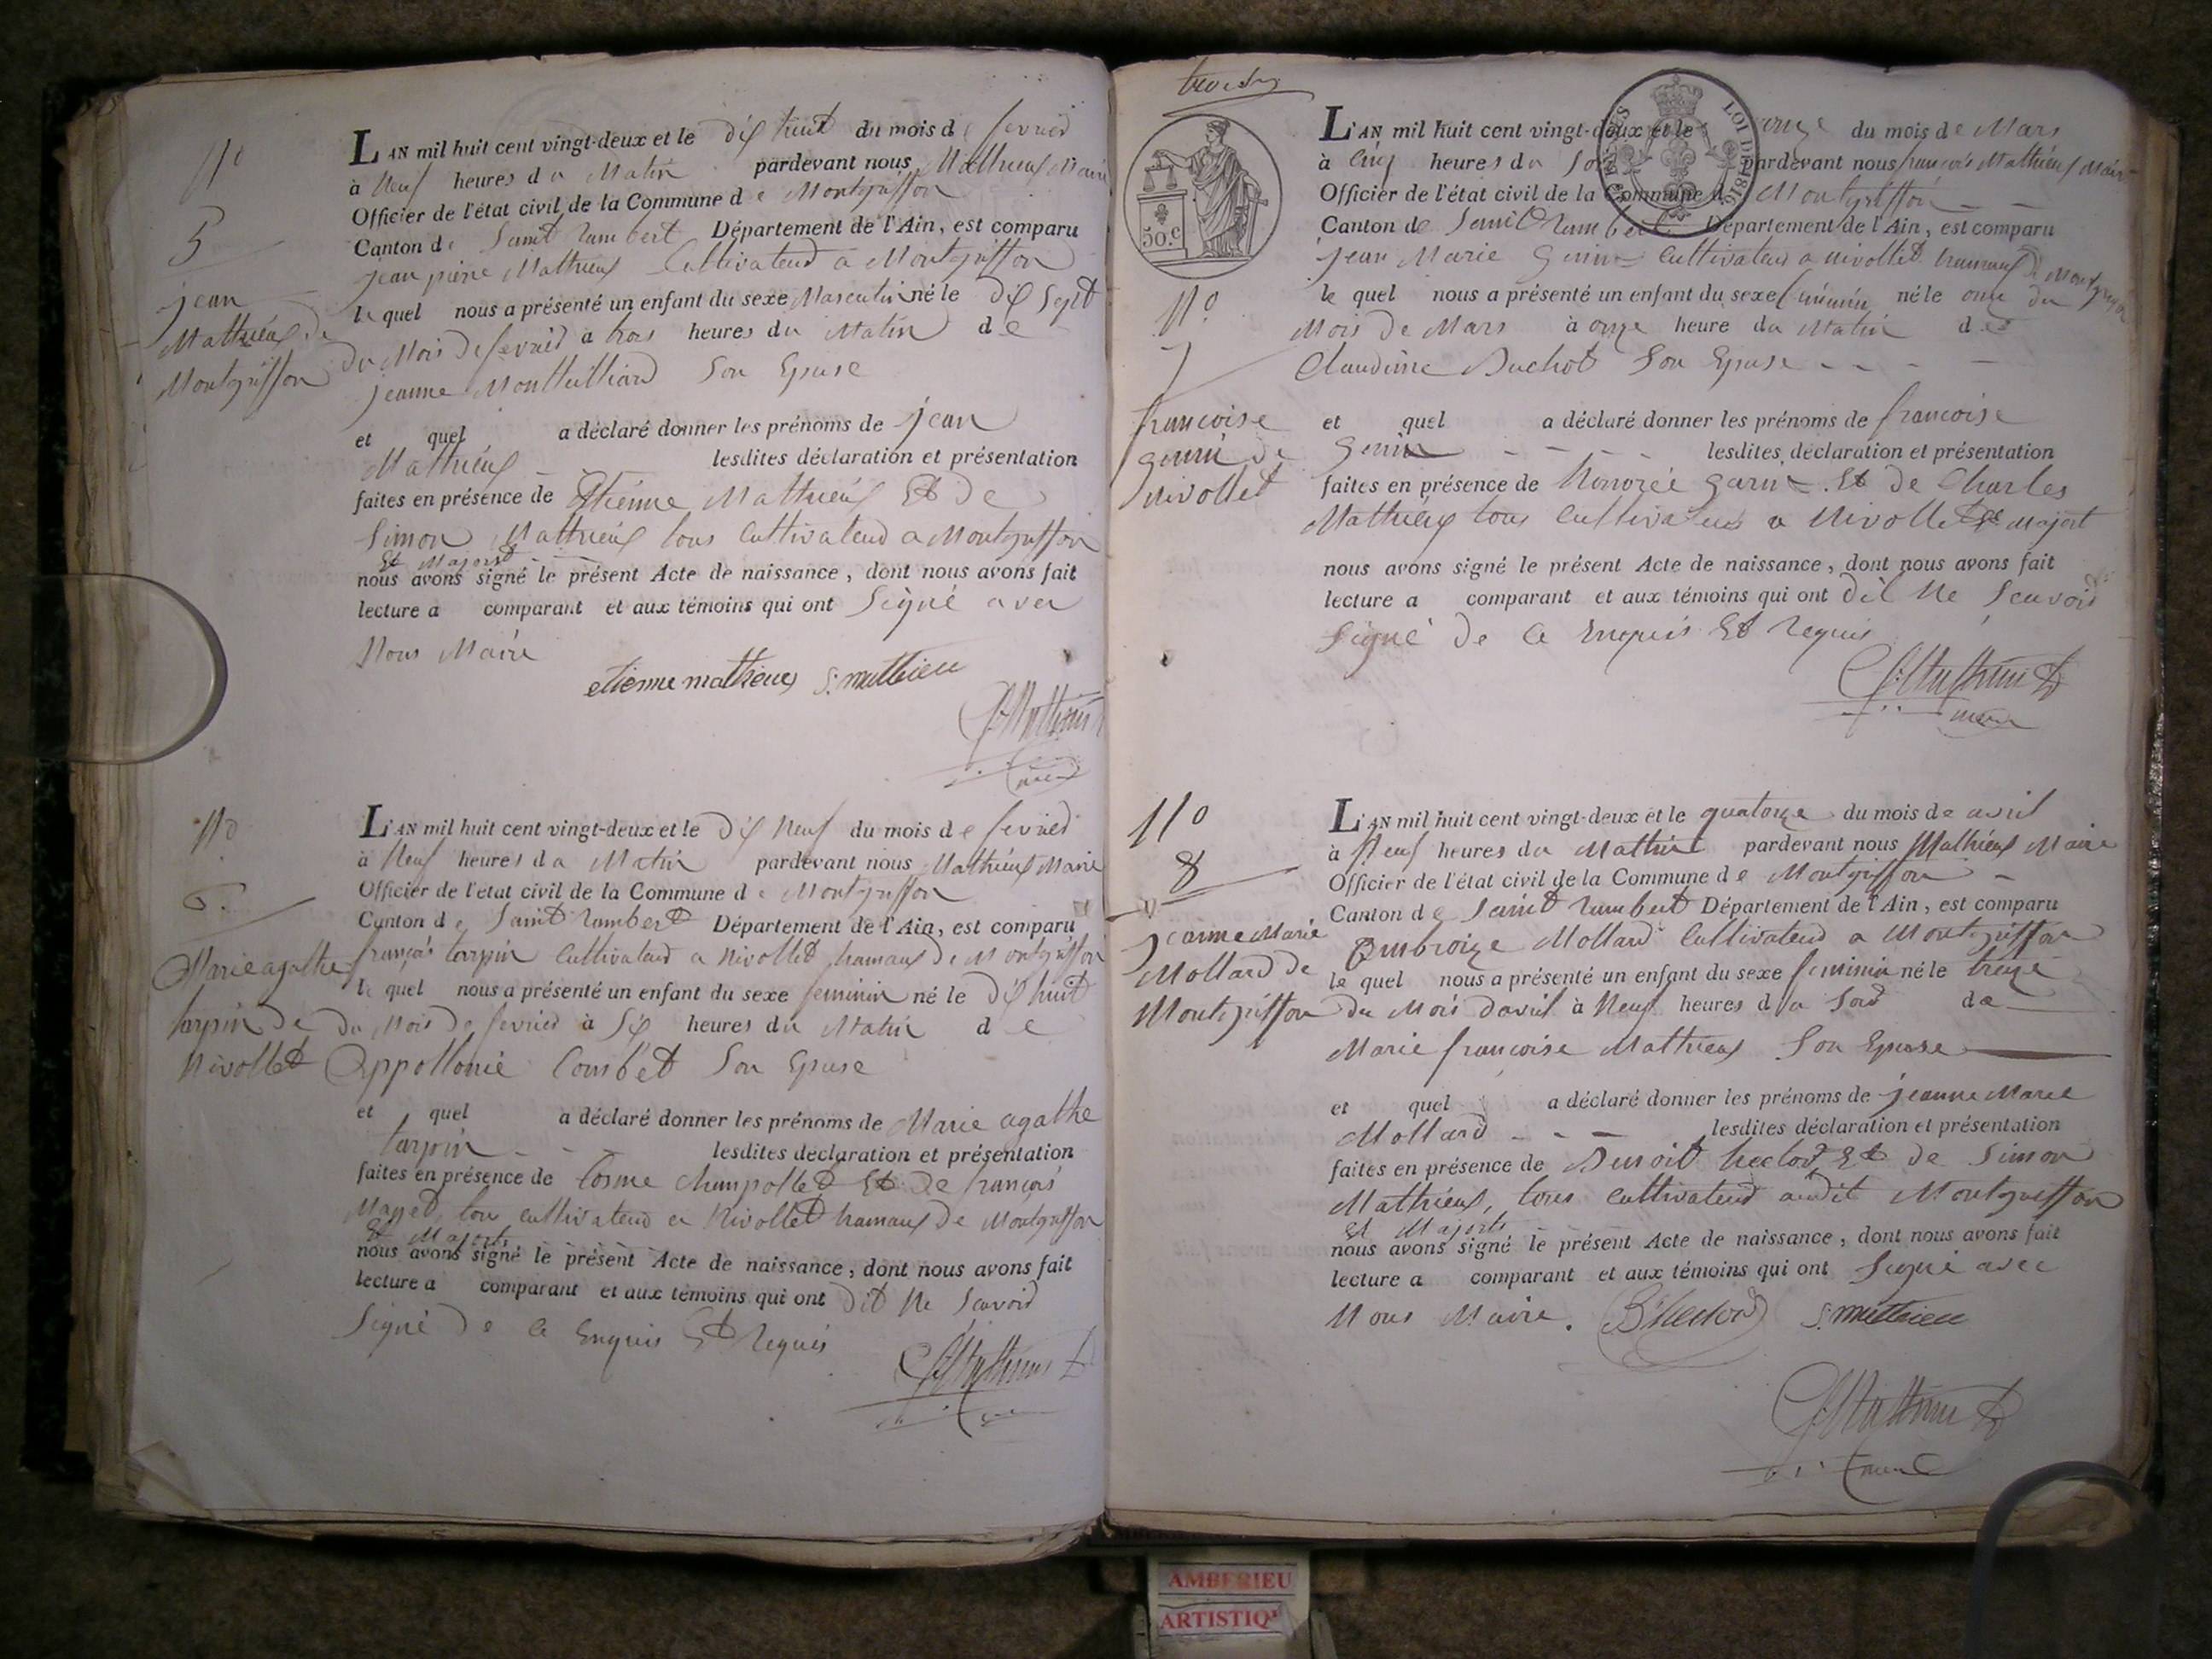 N.o
5
jean
Mathieux de
Montgriffon
L'AN mil huit cent vingt-deux et le dix huit du mois de fevried
à Neuf heures du Matin pardevant nous Mathieux Maire
Officier de l'état civil de la Commune de Montgriffon
Canton de Saint rambert Département de l'Ain, est comparu
jean pierre Mathieux Cultivateud a Montgriffon
le quel nous a présenté un enfant du sexe Masculin né le dix Sept
du Mois de fevried à trois heures du Matin de
jeanne Son Epuse
et quel a déclaré donner les prénoms de jean
Mathieux lesdites déclaration et présentation
faites en présence de Etiénne Mathieux Et de
Simon Mathieux tous Cultivateud a Montgriffon
Et Majors
nous avons signé le présent Acte de naissance, dont nous avons fait
lecture a comparant et aux témoins qui ont Signé avec
Nous Maire
etienne mathieux S. mathieu
N.o
6.
Marie agathe
tarpin de
Nivollet
L'AN mil huit cent vingt-deux et le dix Neuf du mois de fevried
à Neuf heures du Matin pardevant nous Mathieux Maire
Officier de l'état civil de la Commune de Montgriffon
Canton de Saint rambert Département de l'Ain, est comparu
françois tarpin Cultivateud a Nivollet hamaux de Montgriffon
le quel nous a présenté un enfant du sexe feminin né le dix huit
du Mois de fevried à Six heures du Matin de
Appollonie Combet Son Epuse
et quel a déclaré donner les prénoms de Marie agathe
tarpin lesdites déclaration et présentation
faites en présence de Cosme Champollet Et de françois
tou cultivateud a Nivollet hamaux de Montgriffon
Et Majors
nous avons signé le présent Acte de naissance, dont nous avons fait
lecture a comparant et aux témoins qui ont dit Ne Scavoid
Signé de ce Enquis Et Requis
50.c
LOI DE 1816
N.o
7
francoise
genin de
Nivollet
L'AN mil huit cent vingt-deux et le onze du mois de Mars
à Cinq heures du pardevant nous françois Mathieux Maire
Officier de l'état civil de la Commune de Montgriffon
Canton de Saint rambert Département de l'Ain, est comparu
jean Marie Genin Cultivateud a Nivollet hamaux de Montgriffon
le quel nous a présenté un enfant du sexe féminin né le onze du
Mois de Mars à onze heure du Matin de
Claudinne Buchot Son Epuse
et quel a déclaré donner les prénoms de francoise
Genin lesdites déclaration et présentation
faites en présence de honorée Et de Charles
Mathieux tous Cultivateud a Nivollet Et Majort
nous avons signé le présent Acte de naissance, dont nous avons fait
lecture a comparant et aux témoins qui ont dit Ne Scavoid
Signé de Ce Enquis Et Requis
maire
N.o
8
jeanne Marie
Mollard de
Montgriffon
L'AN mil huit cent vingt-deux et le quatorze du mois de avril
à Neuf heures du Mathin pardevant nous Mathieux Maire
Officier de l'état civil de la Commune de Montgriffon
Canton de Saint rambert Département de l'Ain, est comparu
Ambroize Mollard Cultivateud a Montgriffon
le quel nous a présenté un enfant du sexe feminin né le treize
du Mois davril à Neuf heures du Soid de
Marie françoise Mathieux Son Epuse
et quel a déclaré donner les prénoms de jeanne Marie
Mollard lesdites déclaration et présentation
faites en présence de Benoit hector Et de Simon
Mathieux, tous cultivateud audit Montgriffon
Et Majorts
nous avons signé le présent Acte de naissance, dont nous avons fait
lecture a comparant et aux témoins qui ont Signé avec
Nous Maire. B. hector S. mathieu
AMBERIEU
ARTISTIQ